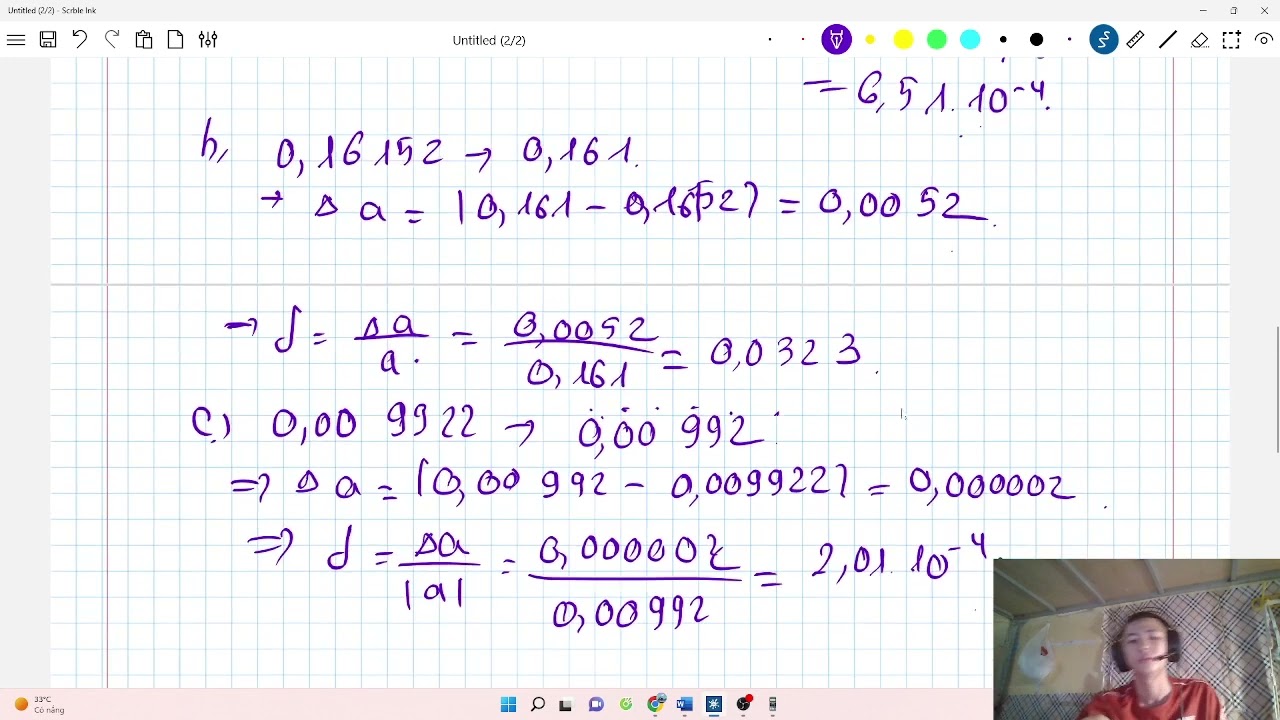 Untitled (2/2) - Scrble Ink
Untitled (2/2)
= 6,51.10⁻⁴.
b, 0,16152 → 0,161.
→ Δa = |0,161 - 0,16152| = 0,0052.
→ δ = Δa/a. = 0,0052/0,161 = 0,0323.
c.) 0,009922 → 0,00992
=> Δa = |0,00992 - 0,009922| = 0,000002.
=> δ = Δa/|a| = 0,000002/0,00992 = 2,01.10⁻⁴
33°C
Có nắng